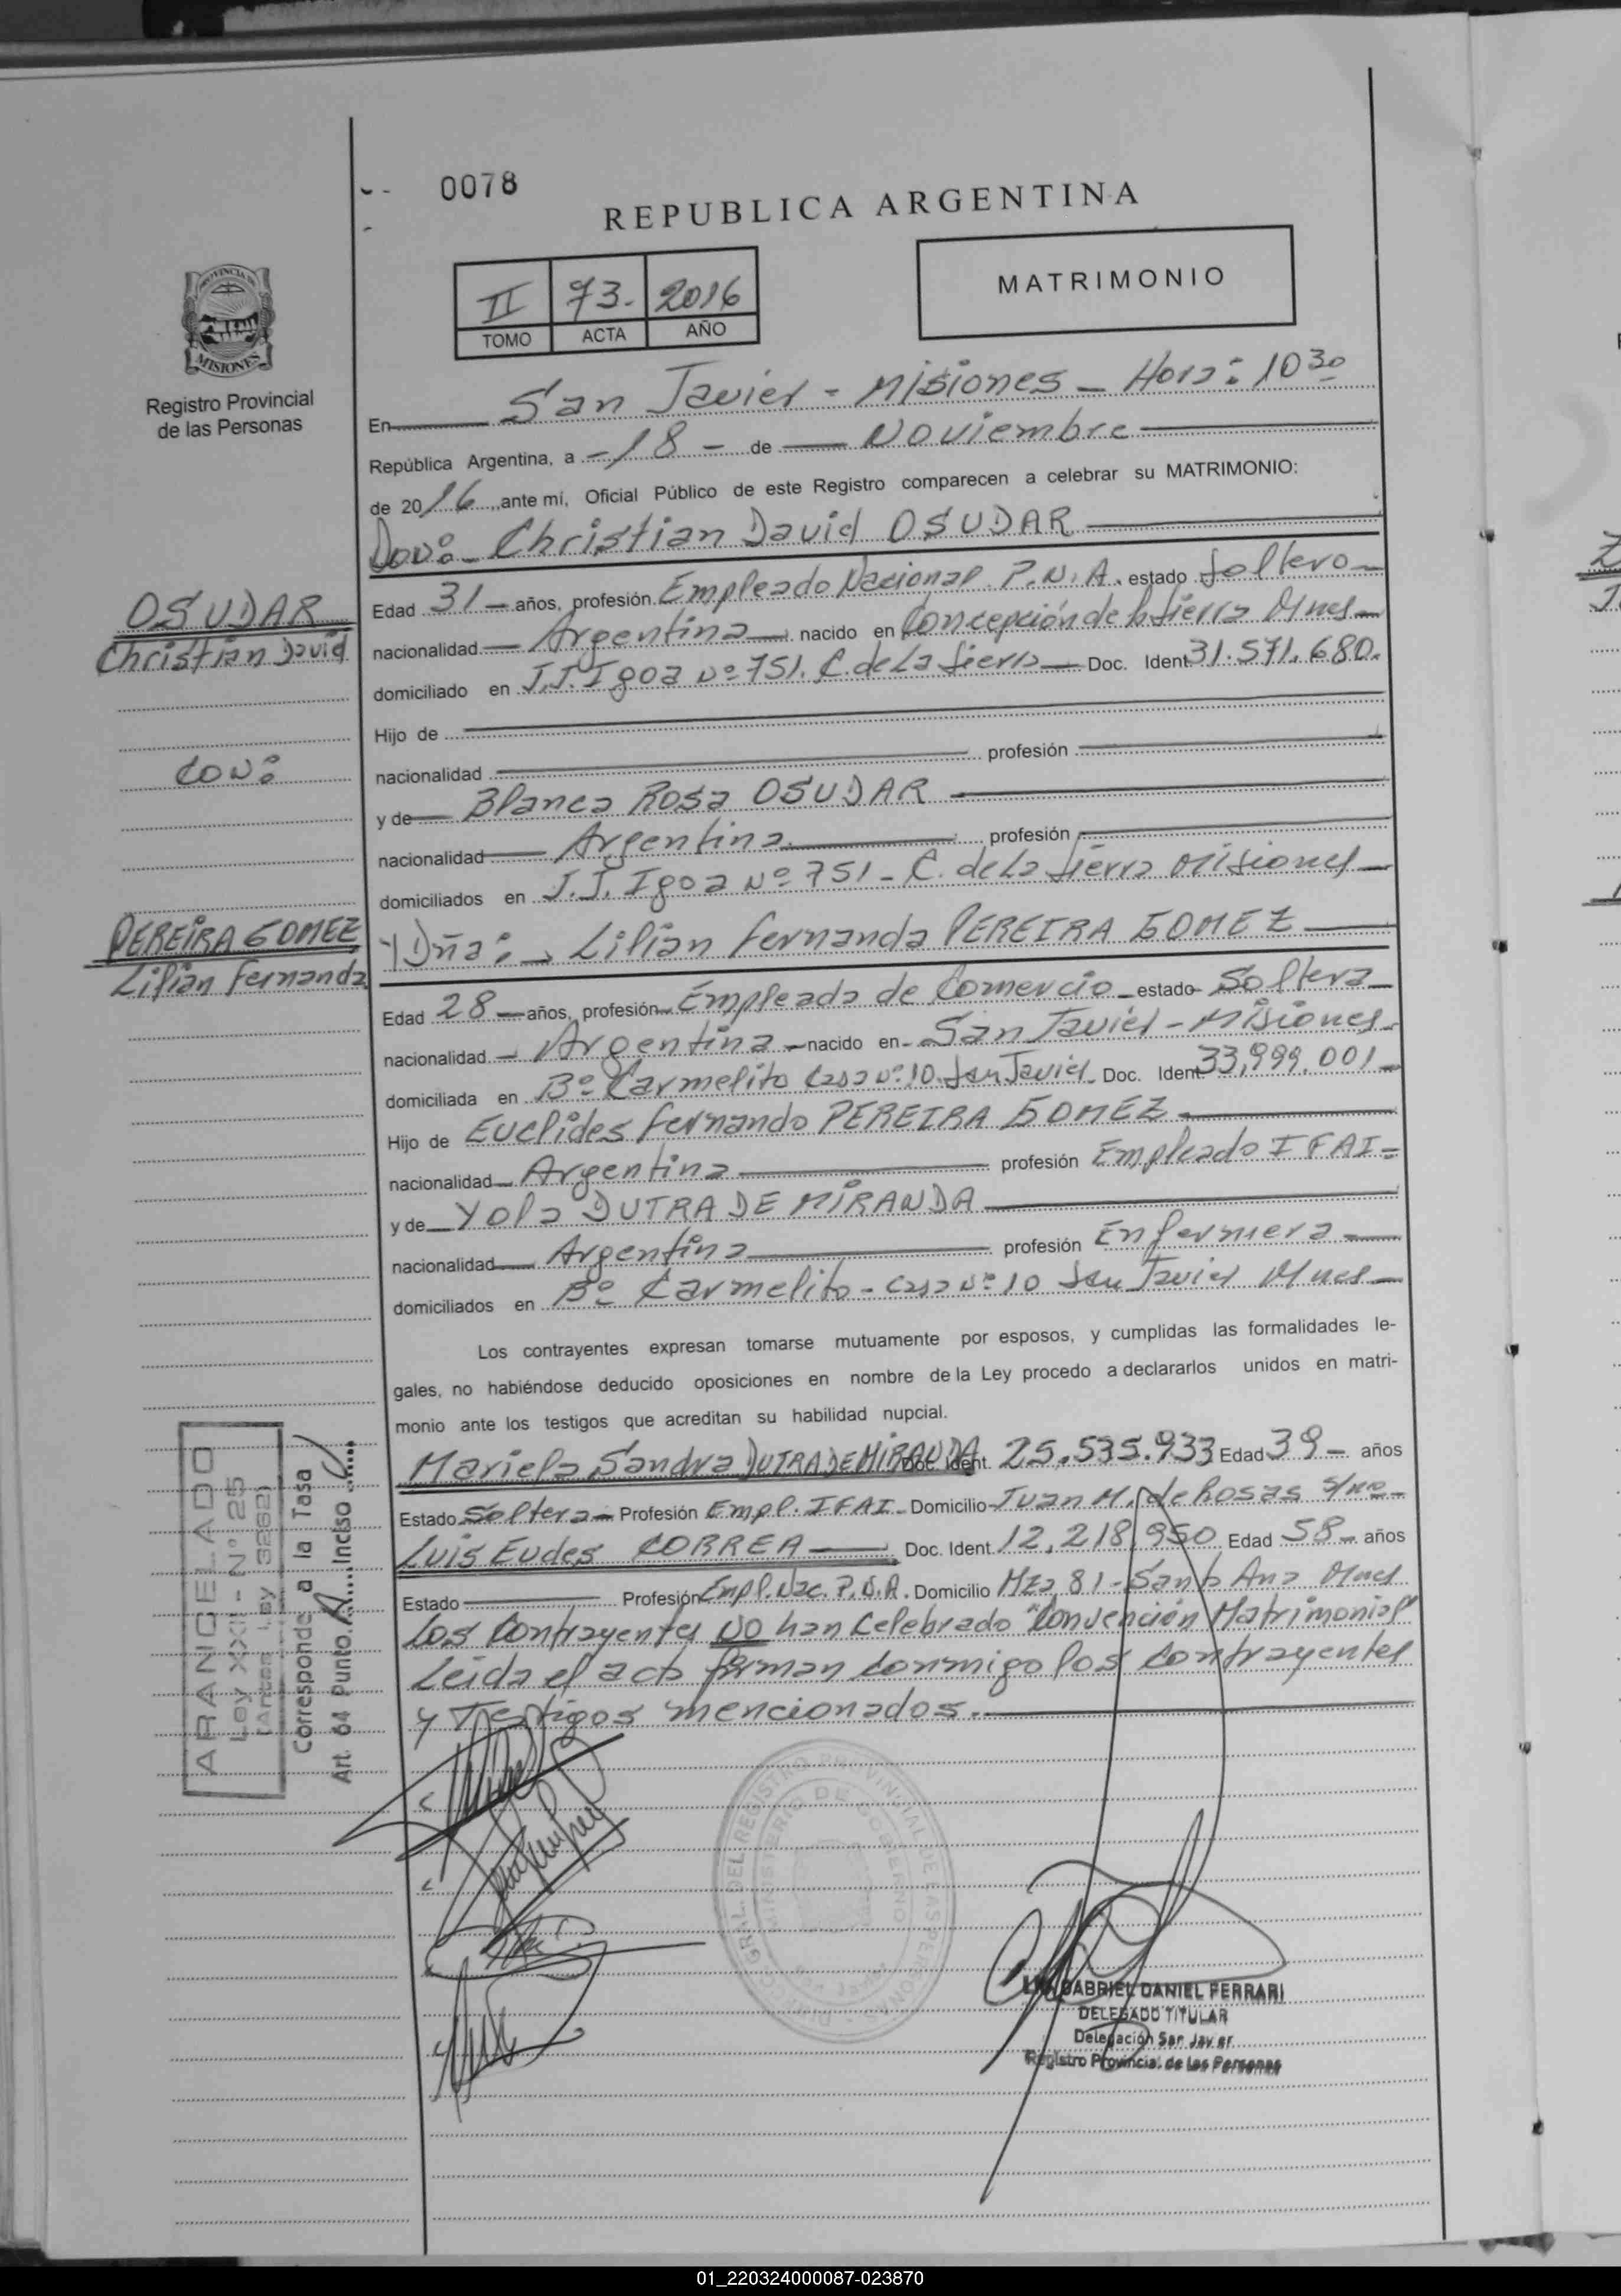 0078
REPUBLICA ARGENTINA
II 73. 2016
TOMO ACTA AÑO
MATRIMONIO
PROVINCIA DE
MISIONES
Registro Provincial
de las Personas
En San Javier - Misiones - Hora: 10 30
República Argentina, a - 18 - de Noviembre
de 2016, ante mí, Oficial Público de este Registro comparecen a celebrar su MATRIMONIO:
Don: Christian David OSUDAR
OSUDAR
Christian David
con:
PEREIRA GOMEZ
Lilian Fernanda
Edad 31 - años, profesión Empleado Nacional P.N.A. estado Soltero
nacionalidad Argentina nacido en Concepción de la Sierra Mnes
domiciliado en J.J. Igoa Nº 751. C. de La Sierra Doc. Ident 31.571.680.
Hijo de
nacionalidad profesión
y de Blanca Rosa OSUDAR
nacionalidad Argentina profesión
domiciliados en J.J. Igoa Nº 751 - C. de La Sierra Misiones
Y Dña: Lilian Fernanda PEREIRA GOMEZ
Edad 28 años, profesión Empleada de Comercio estado Soltera
nacionalidad Argentina nacido en San Javier - Misiones
domiciliada en Bº Carmelito Casa Nº 10 San Javier Doc. Ident. 33,999.001
Hijo de Euclides Fernando PEREIRA GOMEZ
nacionalidad Argentina profesión Empleado IFAI
y de Yola DUTRA DE MIRANDA
nacionalidad Argentina profesión Enfermera
domiciliados en Bº Carmelito - Casa Nº 10 San Javier Mnes
Los contrayentes expresan tomarse mutuamente por esposos, y cumplidas las formalidades le-
gales, no habiéndose deducido oposiciones en nombre de la Ley procedo a declararlos unidos en matri-
monio ante los testigos que acreditan su habilidad nupcial.
Mariela Sandra DUTRA DE MIRANDA Doc. Ident. 25.535.933 Edad 39 - años
Estado Soltera Profesión Empl. IFAI Domicilio Juan M. de Rosas
Luis Eudes CORREA Doc. Ident. 12,218,950 Edad 58 - años
Estado Profesión Empl. Nac. P.N.A. Domicilio Mza 81 - Santa Ana Mnes
Los Contrayentes NO han Celebrado "Convención Matrimonial"
Leida el acta firman conmigo los contrayentes
y Testigos mencionados.
ARANCELADO
Ley XXII - Nº 25
(Antes Ley 3262)
Corresponde a la Tasa
Art. 64 Punto A Inciso
DIRECC. GRAL. DEL REGISTRO PROVINCIAL DE LAS PERSONAS
MINISTERIO DE GOBIERNO
GABRIEL DANIEL FERRARI
DELEGADO TITULAR
Delegación San Javier
Registro Provincial de las Personas
01_220324000087-023870